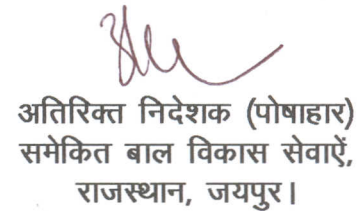 अतिरिक्त निदेशक (पोषाहार)
समेकित बाल विकास सेवाऐं,
राजस्थान, जयपुर।